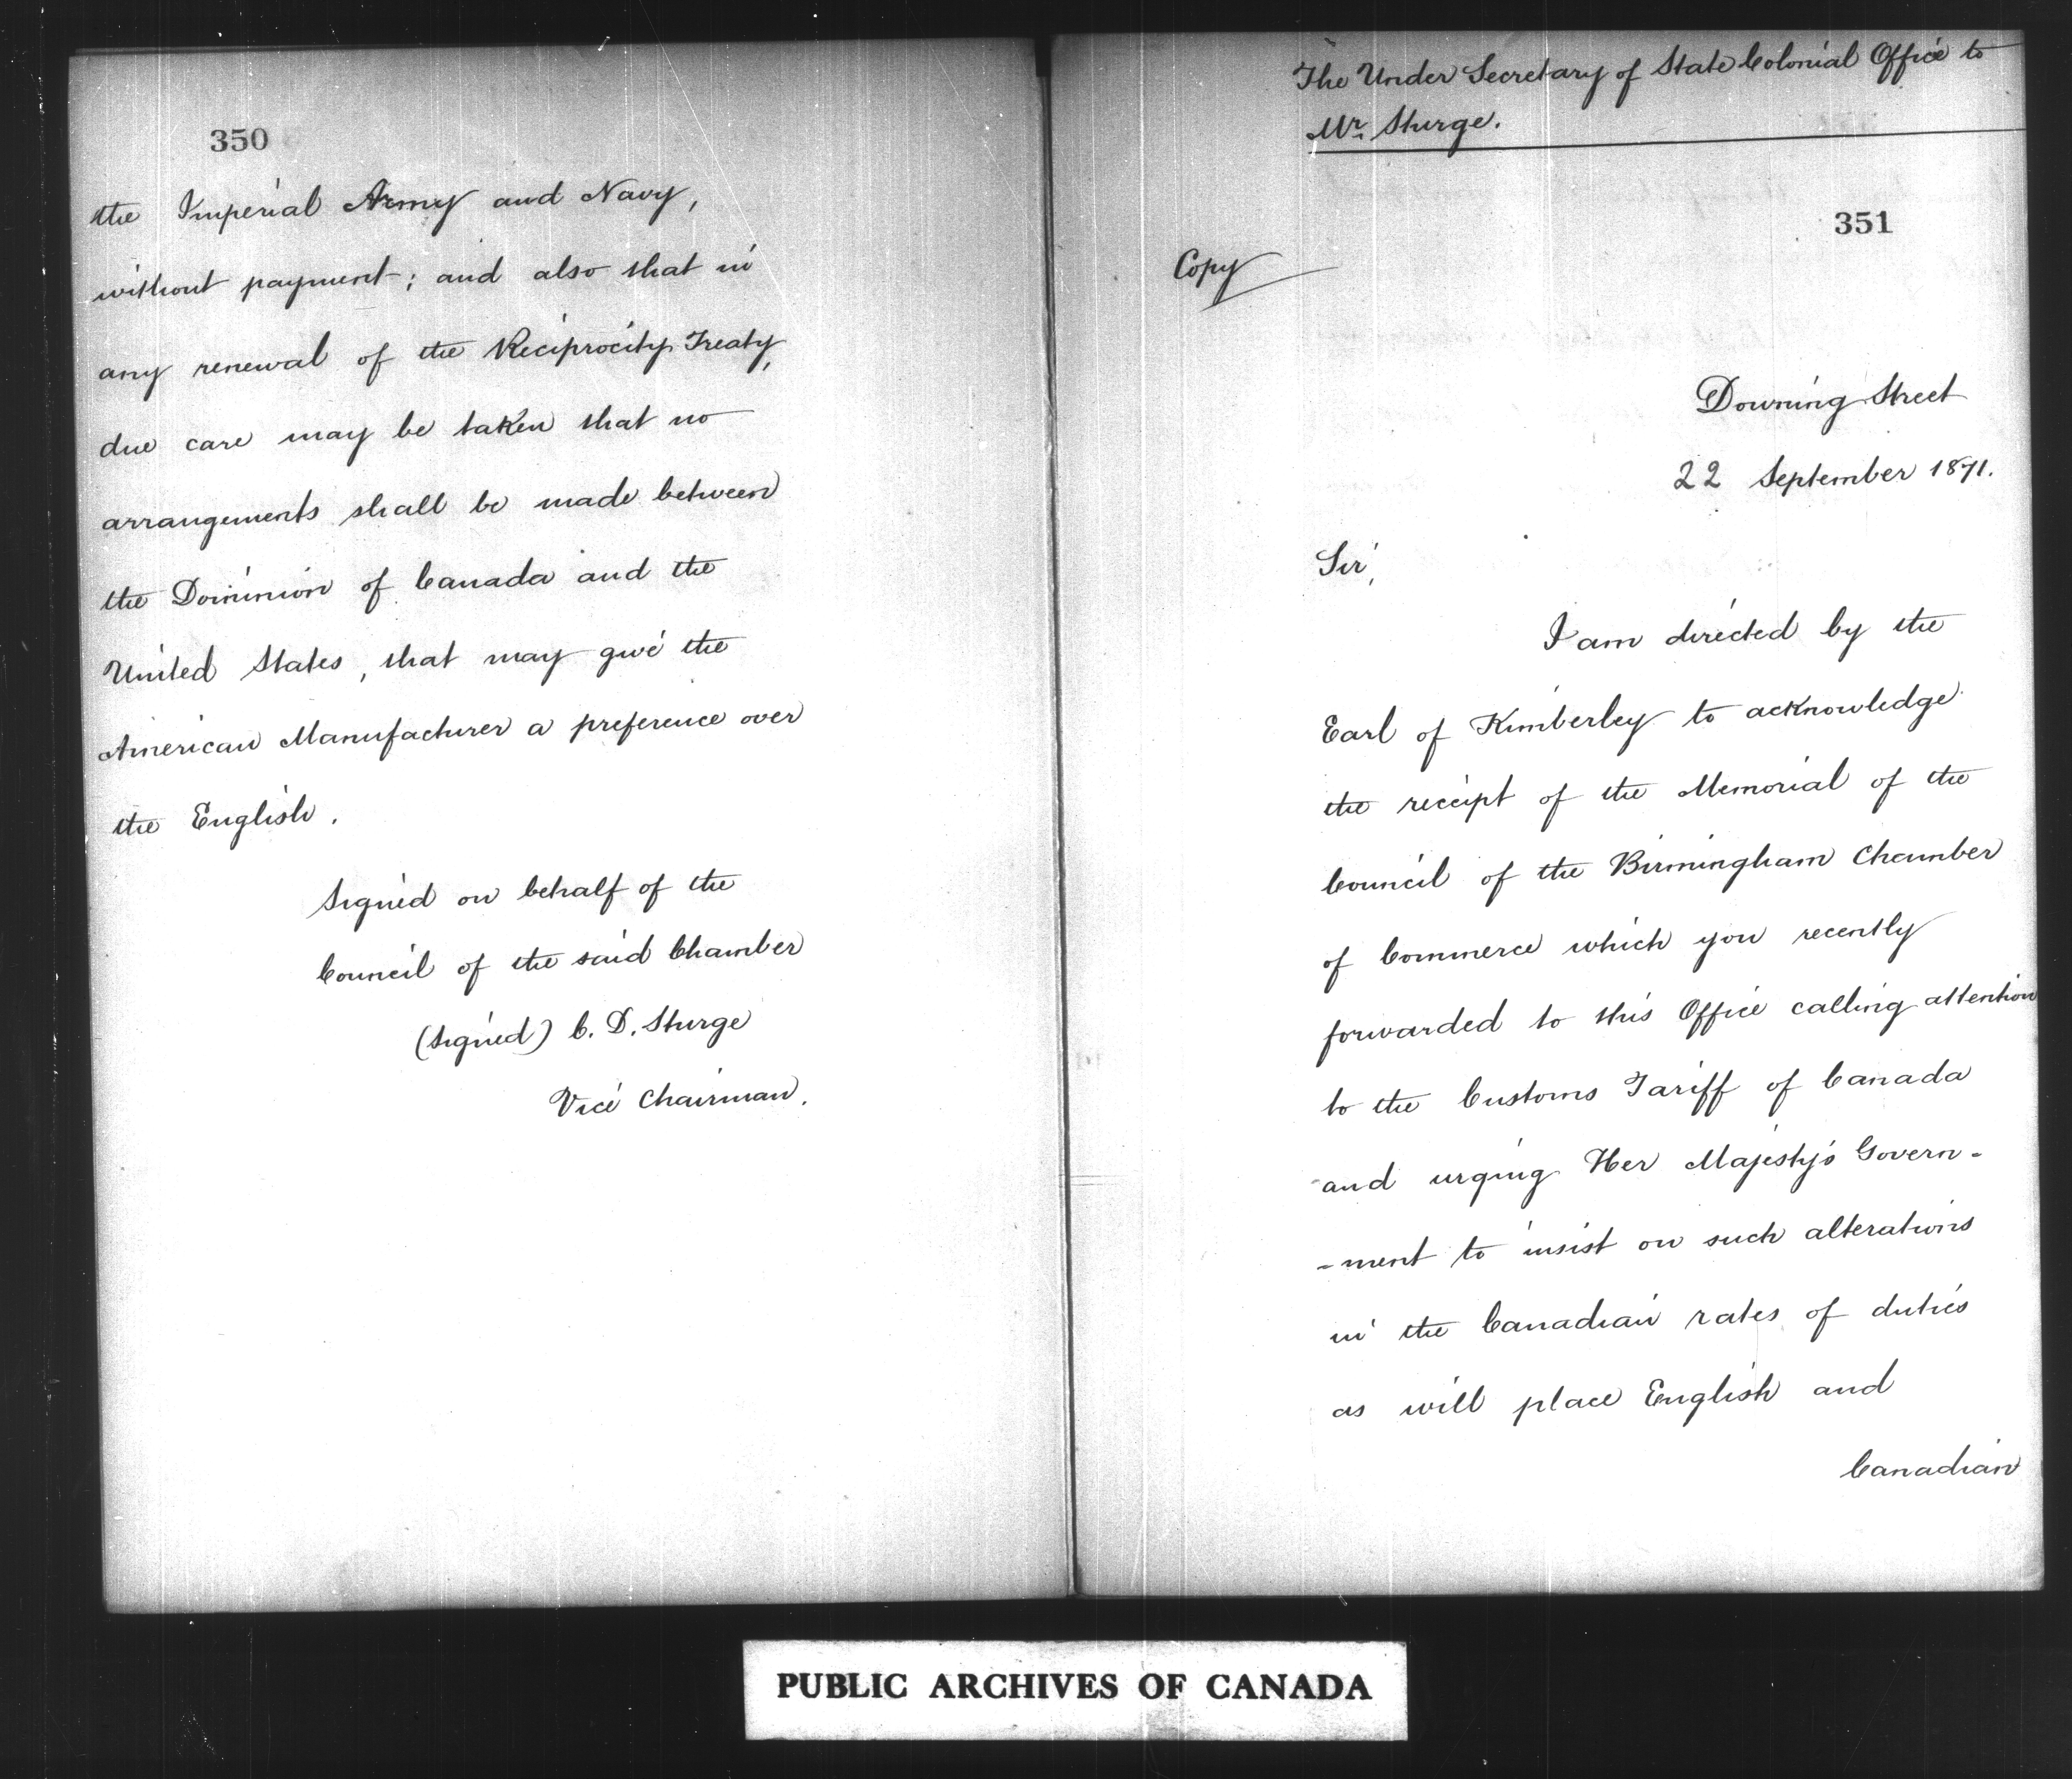 350
the Imperial Army and Navy,
without payment; and also that in
any renewal of the Reciprocity Treaty,
due care may be taken that no
arrangements shall be made between
the Dominion of Canada and the
United States, that may give the
American Manufacturer a preference over
the English.
Signed on behalf of the
Council of the said Chamber
(Signed) C. D. Sturge
Vice Chairman.
The Under Secretary of State Colonial Office to
Mr. Sturge.
351
Copy
Downing Street
22 September 1871.
Sir,
I am directed by the
Earl of Kimberley to acknowledge
the receipt of the Memorial of the
Council of the Birmingham Chamber
of Commerce which you recently
forwarded to this Office calling attention
to the Customs Tariff of Canada
and urging Her Majesty's Govern-
-ment to insist on such alterations
in the Canadian rates of duties
as will place English and
Canadian
PUBLIC ARCHIVES OF CANADA